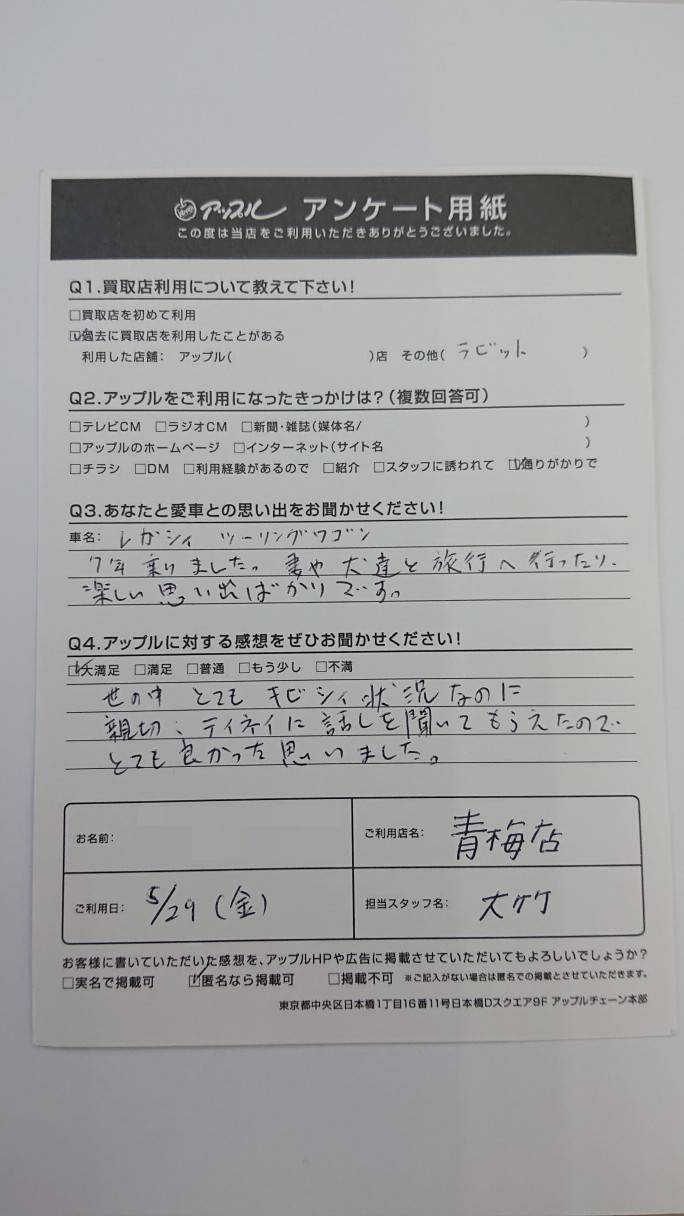 アップル アンケート用紙
この度は当店をご利用いただきありがとうございました。
Q1.買取店利用について教えて下さい!
□買取店を初めて利用
☑過去に買取店を利用したことがある
利用した店舗: アップル( )店 その他( ラビット )
Q2.アップルをご利用になったきっかけは?(複数回答可)
□テレビCM □ラジオCM □新聞・雑誌(媒体名/ )
□アップルのホームページ □インターネット(サイト名 )
□チラシ □DM □利用経験があるので □紹介 □スタッフに誘われて ☑通りがかりで
Q3.あなたと愛車との思い出をお聞かせください!
車名: レガシィ ツーリングワゴン
7年乗りました。妻や犬達と旅行へ行ったり、
楽しい思い出ばかりです。
Q4.アップルに対する感想をぜひお聞かせください!
☑大満足 □満足 □普通 □もう少し □不満
世の中 とても キビシィ状況なのに
親切、テイネイに話しを聞いてもらえたので
とても良かったと思いました。
お名前:
ご利用店名: 青梅店
ご利用日: 5/29(金)
担当スタッフ名: 大竹
お客様に書いていただいた感想を、アップルHPや広告に掲載させていただいてもよろしいでしょうか?
□実名で掲載可 ☑匿名なら掲載可 □掲載不可 ※ご記入がない場合は匿名での掲載とさせていただきます。
東京都中央区日本橋1丁目16番11号日本橋Dスクエア9F アップルチェーン本部